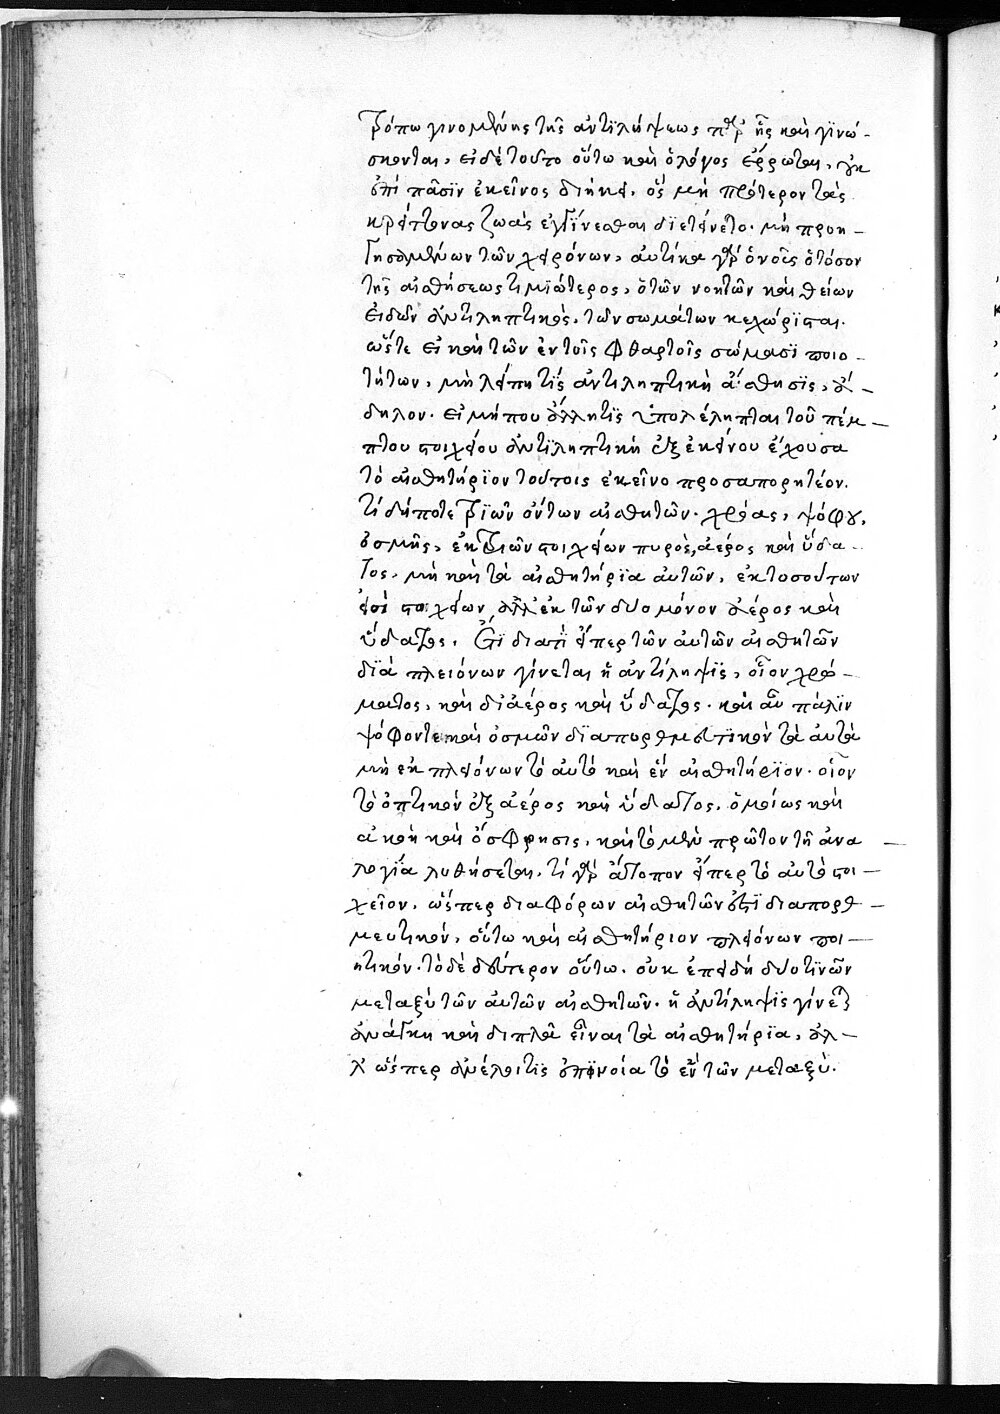 τρόπω γινομένης τῆς ἀντιλήψεως παρ' ἧς καὶ γϊνώ-
σκονται, εἰ δὲ τοῦτο οὕτω καὶ ὁ λόγος ἔρρωται,
ἐπὶ πᾶσϊν ἐκεῖνος διήκει, ὃς μὴ πρότερον τὰς
κρείττονας ζωὰς ἐγγίνεσθαι δϊετείνετο. μὴ προη-
γησαμένων τῶν χειρόνων, αὐτίκα γὰρ ὁ νοῦς ὁ τόσον
τῆς αἰσθήσεως τιμϊώτερος, ὁ τῶν νοητῶν καὶ θείων
εἰδῶν ἀντιληπτικὸς, τῶν σωμάτων κεχώρϊσται.
ὥστε εἰ καὶ τῶν ἐν τοῖς φθαρτοῖς σώμασϊ ποιο-
τήτων, μὴ λείπῃ τϊς ἀντιληπτικὴ αἴσθησϊς, ἄ-
δηλον. εἰ μήπου ἄλλη τϊς ὑπολέληπται τοῦ πέμ-
πτου στοιχείου ἀντϊληπτικὴ ἐξ ἐκείνου ἔχουσα
τὸ αἰσθητήρϊον τούτοις ἐκεῖνο προσαπορητέον.
τί δήποτε τρϊῶν ὄντων αἰσθητῶν. χρόας, ψόφου,
ὀσμῆς, ἐκ τριῶν στοιχείων πυρὸς, ἀέρος καὶ ὕδα-
τος, μὴ καὶ τὰ αἰσθητήρϊα αὐτῶν, ἐκ τοσούτων
εἰσὶ στοιχείων, ἀλλ' ἐκ τῶν δύο μόνον ἀέρος καὶ
ὕδατος. Ἔτϊ διατί εἴπερ τῶν αὐτῶν αἰσθητῶν
δϊὰ πλειόνων γίνεται ἡ ἀντίληψϊς, οἷον χρώ-
ματος, καὶ δι' ἀέρος καὶ ὕδατος. καὶ αὖ πάλϊν
ψόφον τε καὶ ὀσμῶν δϊαπορθμευτϊκὸν τὰ αὐτὰ
μὴ ἐκ πλειόνων τὸ αὐτὸ καὶ ἓν αἰσθητήρϊον. οἷον
τὸ ὀπτικὸν ἐξ ἀέρος καὶ ὕδατος, ὁμοίως καὶ
ἀκοὴ καὶ ὄσφρησις, καὶ τὸ μὲν πρῶτον τῇ ἀνα
λογϊα λυθήσεται, τί γὰρ ἄτοπον εἴπερ τὸ αὐτὸ στοι-
χεῖον, ὥσπερ διαφόρων αἰσθητῶν ἐστϊ διαπορθ-
μευτικὸν, οὕτω καὶ αἰσθητήριον πλειόνων ποι-
ητικόν. τὸ δὲ δεύτερον οὕτω. οὐκ ἐπειδὴ δύο τϊνῶν
μεταξὺ τῶν αὐτῶν αἰσθητῶν. ἡ ἀντίληψϊς γίνεται
ἀνάγκη καὶ διπλᾶ εἶναι τὰ αἰσθητήρϊα, ἀλ-
λ' ὥσπερ ἀνέλοι τϊς ἐπϊνοία τὸ ἓν τῶν μεταξὺ.